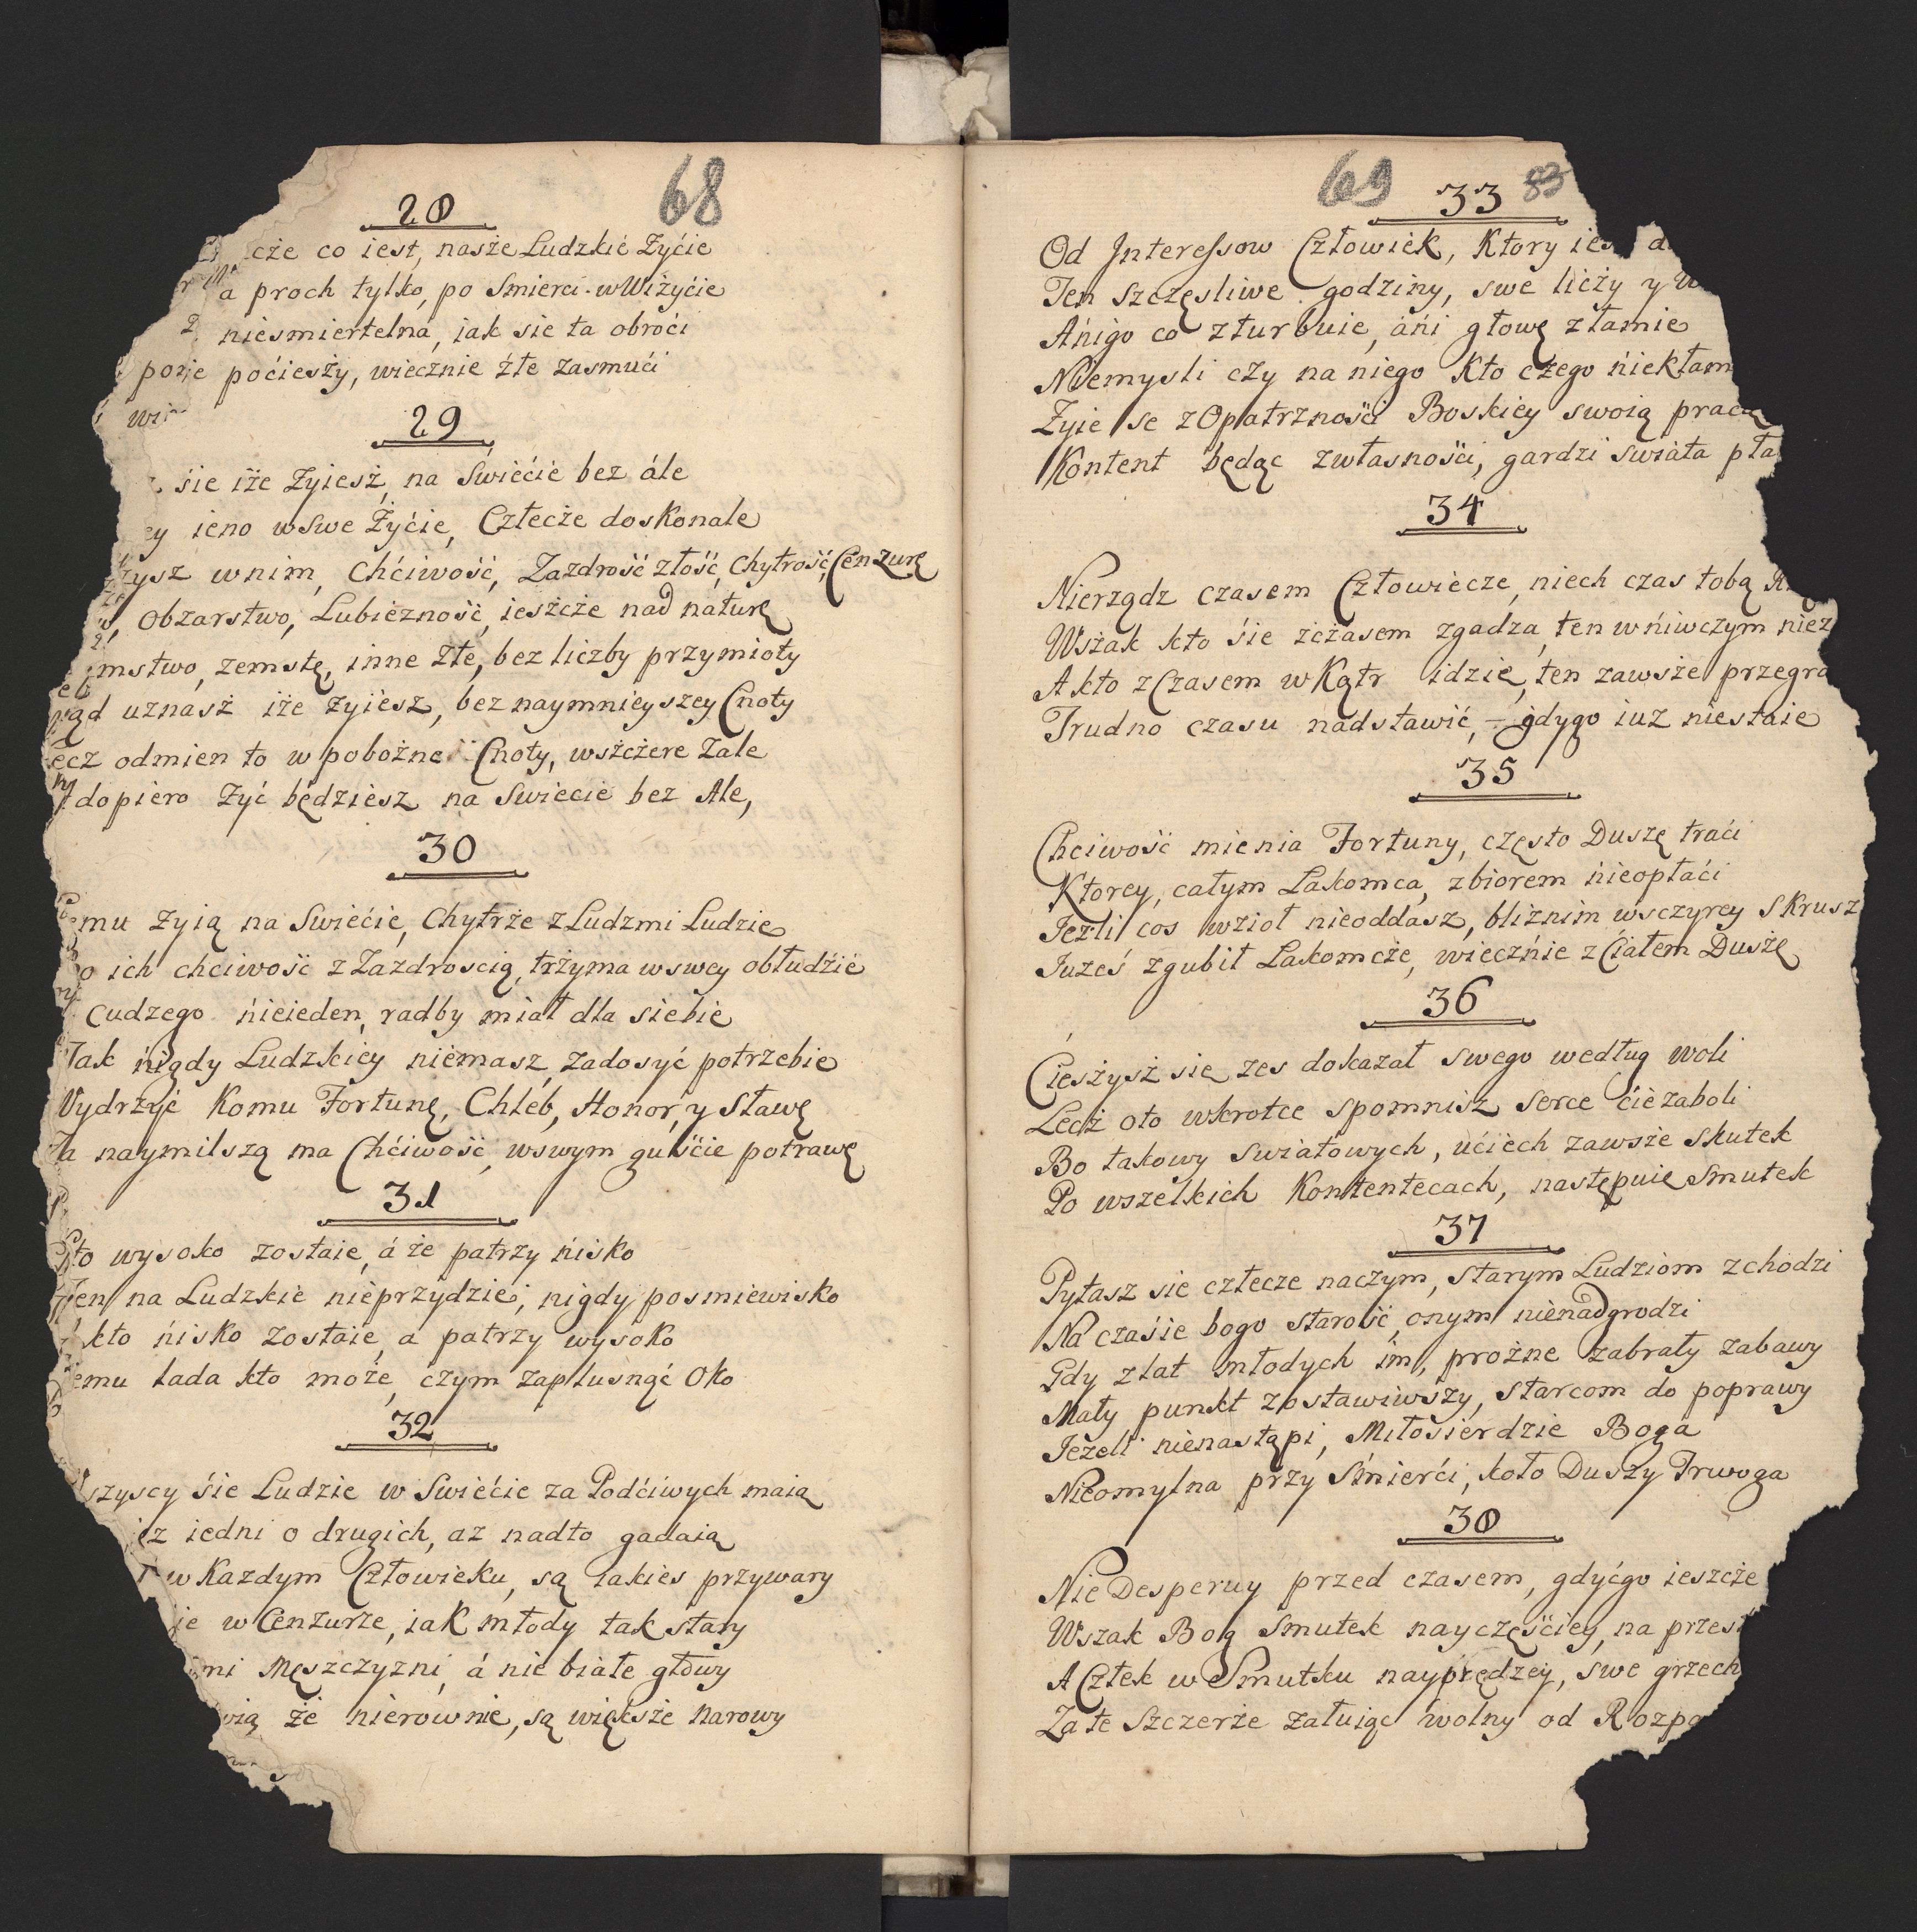 68
28
cże co iest, nasże Ludzkie Zyćie
a proch tylko, po Smierci w Wiżyćie
niesmiertelna, iak sie ta obroći
poćieszy, wiecznie źłe zasmući
29
śie iże Zyiesż, na Swiećie bez ále
ieno w swe Zyćie, Człecże doskonale
w nim, Chćiwość, Zazdrość złość, Chytrość, Cenzurę
Obzarstwo, Lubieżność, ieszcże nad naturę
mstwo, zemstę, inne Złe, bez liczby przymioty
uznasż iże żyiesz, bez naymnieyszey Cnoty
ecz odmien to w pobożne Cnoty, wsżcżere Zale
dopiero Zyć będziesz na Swiecie bez Ale,
30
mu żyią na Swiećie, Chytrże z Ludzmi Ludzie
o ich chciwość z Zazdroscią, trżyma w swey obłudżie
cudzego nieieden, radby miał dla siebie
Tak nigdy Ludzkiey niemasz, zadosyć potrzebie
Wydrżyć Komu Fortunę, Chleb, Honor, y Sławę
Za naymilszą ma Chćiwość, wswym guśćie potrawę
31
Kto wysoko zostaie, á że patrzy nisko
Ten na Ludzkie nieprzydzie, nigdy posmiewisko
kto nisko zostaie, a patrzy wysoko
temu lada kto może, czym zaplusnąć Oko
32
Wszyscy śie Ludzie w Swiećie za Podćiwych maią
iedni o drugich, az nadto gadaią
w Kazdym Człowieku, są iakies przywary
w Cenzurze, iak młody tak stary
mi Męszczyzni, á nie białe głowy
że nierownie, są większe Narowy
69 83
33
Od Jnteressow Człowiek, Ktory iest
Ten szczęsliwe godziny, swe licży y
Ańigo co zturbuie, áńi głowę złamie
Niemysli czy na niego Kto czego niekłam
Zyie se z Opatrznośći Boskiey swoią pracą
Kontent będąc zwłasnośći, gardzi swiata pła
34
Nierządz czasem Człowiecze, niech czas tobą
Wszak kto śie zcżasem zgadza, ten wńiwczym niez
A kto z Czasem w Kątr idzie, ten zawsże przegra
Trudno czasu nadstawić, - gdygo iuz niestaie
35
Chciwość mienia Fortuny, często Duszę traći
Ktorey, całym Łakomca, zbiorem nieopłaći
Jezli cos wzioł nieoddasz, bliznim wsczyrey Skrusz
Juześ zgubił Łakomcże, wiecznie z Ciałem Dusżę
36
Cieszysż się zes dokazał swego według woli
Lecż oto wkrotce spomnisz serce ćie zaboli
Bo takowy swiatowych, ućiech zawsże skutek
Po wszelkich Kontentecach, następuie Smutek
37
Pytasz sie człecze naczym, starym Ludziom zchodzi
Na czaśie bogo starość, onym nienadgrodzi
Gdy z lat młodych im, prożne zabrały zabawy
Mały punkt zostawiwszy, starcom do poprawy
Jeżeli nienastąpi, Miłosierdzie Boga
Nieomylna przy Smierći, koło Duszy Trwoga
38
Nie Desperuy przed czasem, gdyćgo ieszcże
Wszak Bog Smutek nayczęśćiey, na przes
A Człek w Smutku nayprędzey, swe grzech
Za te Szczerże żałuiąc wolny od Rozpa